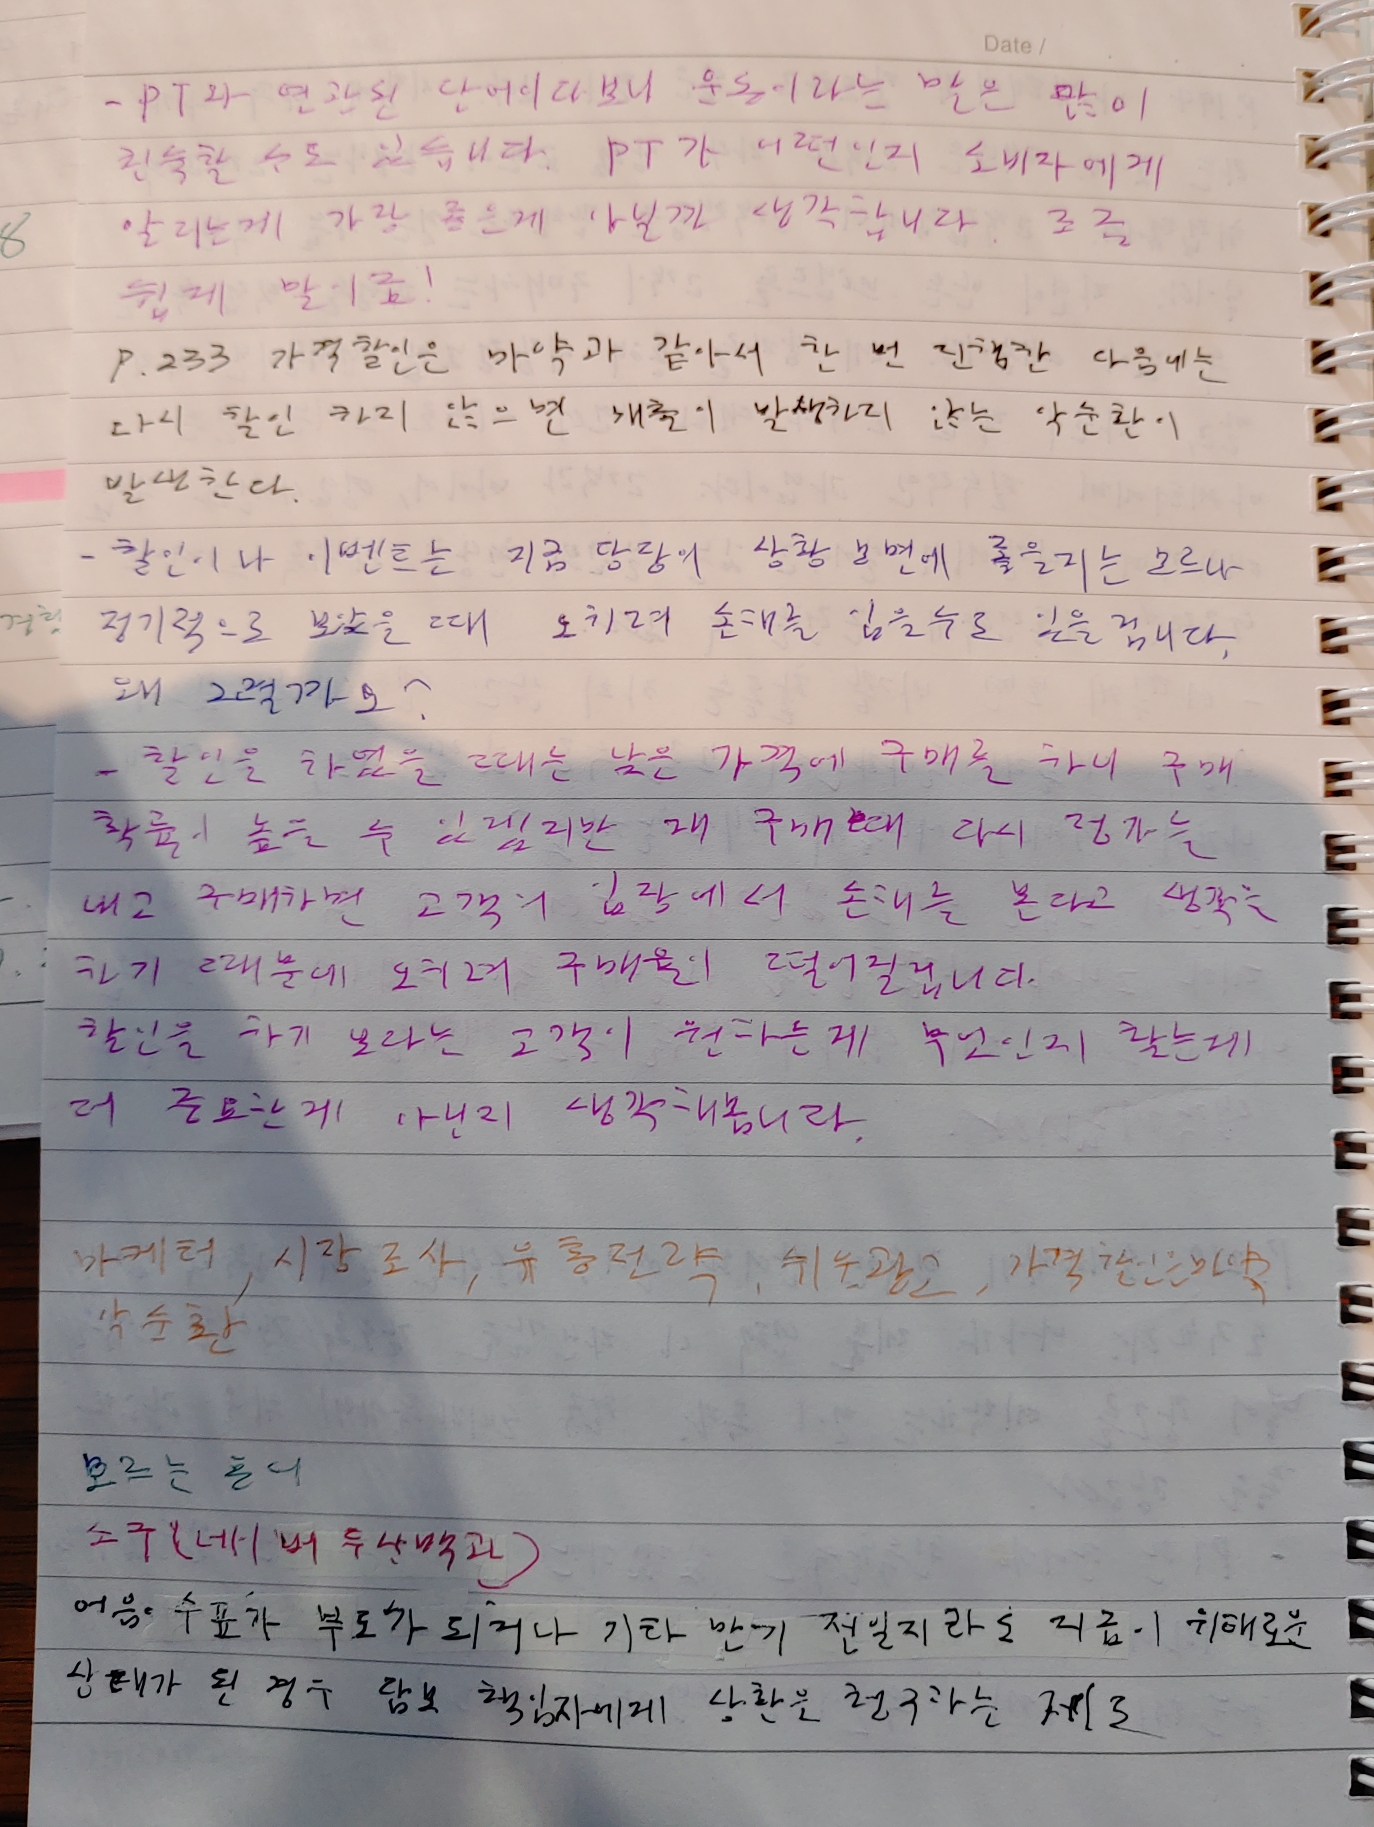 Date /
- PT와 연관된 단어이다보니 운동이라는 말은 많이
친숙할 수도 있습니다. PT가 어떤인지 소비자에게
알리는게 가장 좋은게 아닐까 생각합니다. 조금
쉽게 말이죠!
P.233 가격할인은 마약과 같아서 한 번 진행한 다음에는
다시 할인 하지 않으면 매출이 발생하지 않는 악순환이
발생한다.
- 할인이나 이벤트는 지금 당장의 상황 보면에 좋을지는 모르나
정기적으로 보았을 때 오히려 손해를 입을수도 있을겁니다.
왜 그럴까요?
- 할인을 하였을 때는 낮은 가격에 구매를 하니 구매
확률이 높을 수 있겠지만 재 구매때 다시 정가를
내고 구매하면 고객의 입장에서 손해를 본다고 생각을
하기 때문에 오히려 구매율이 떨어질겁니다.
할인을 하기 보다는 고객이 원하는게 무엇인지 찾는게
더 중요한게 아닌지 생각해봅니다.
마케터, 시장조사, 유통전략, 위눈광고, 가격할인은마약
악순환
모르는 단어
소구(네이버 두산백과)
어음·수표가 부도가 되거나 기타 만기 전일지라도 지급이 위태로운
상태가 된 경우 담보 책임자에게 상환을 청구하는 제도
8